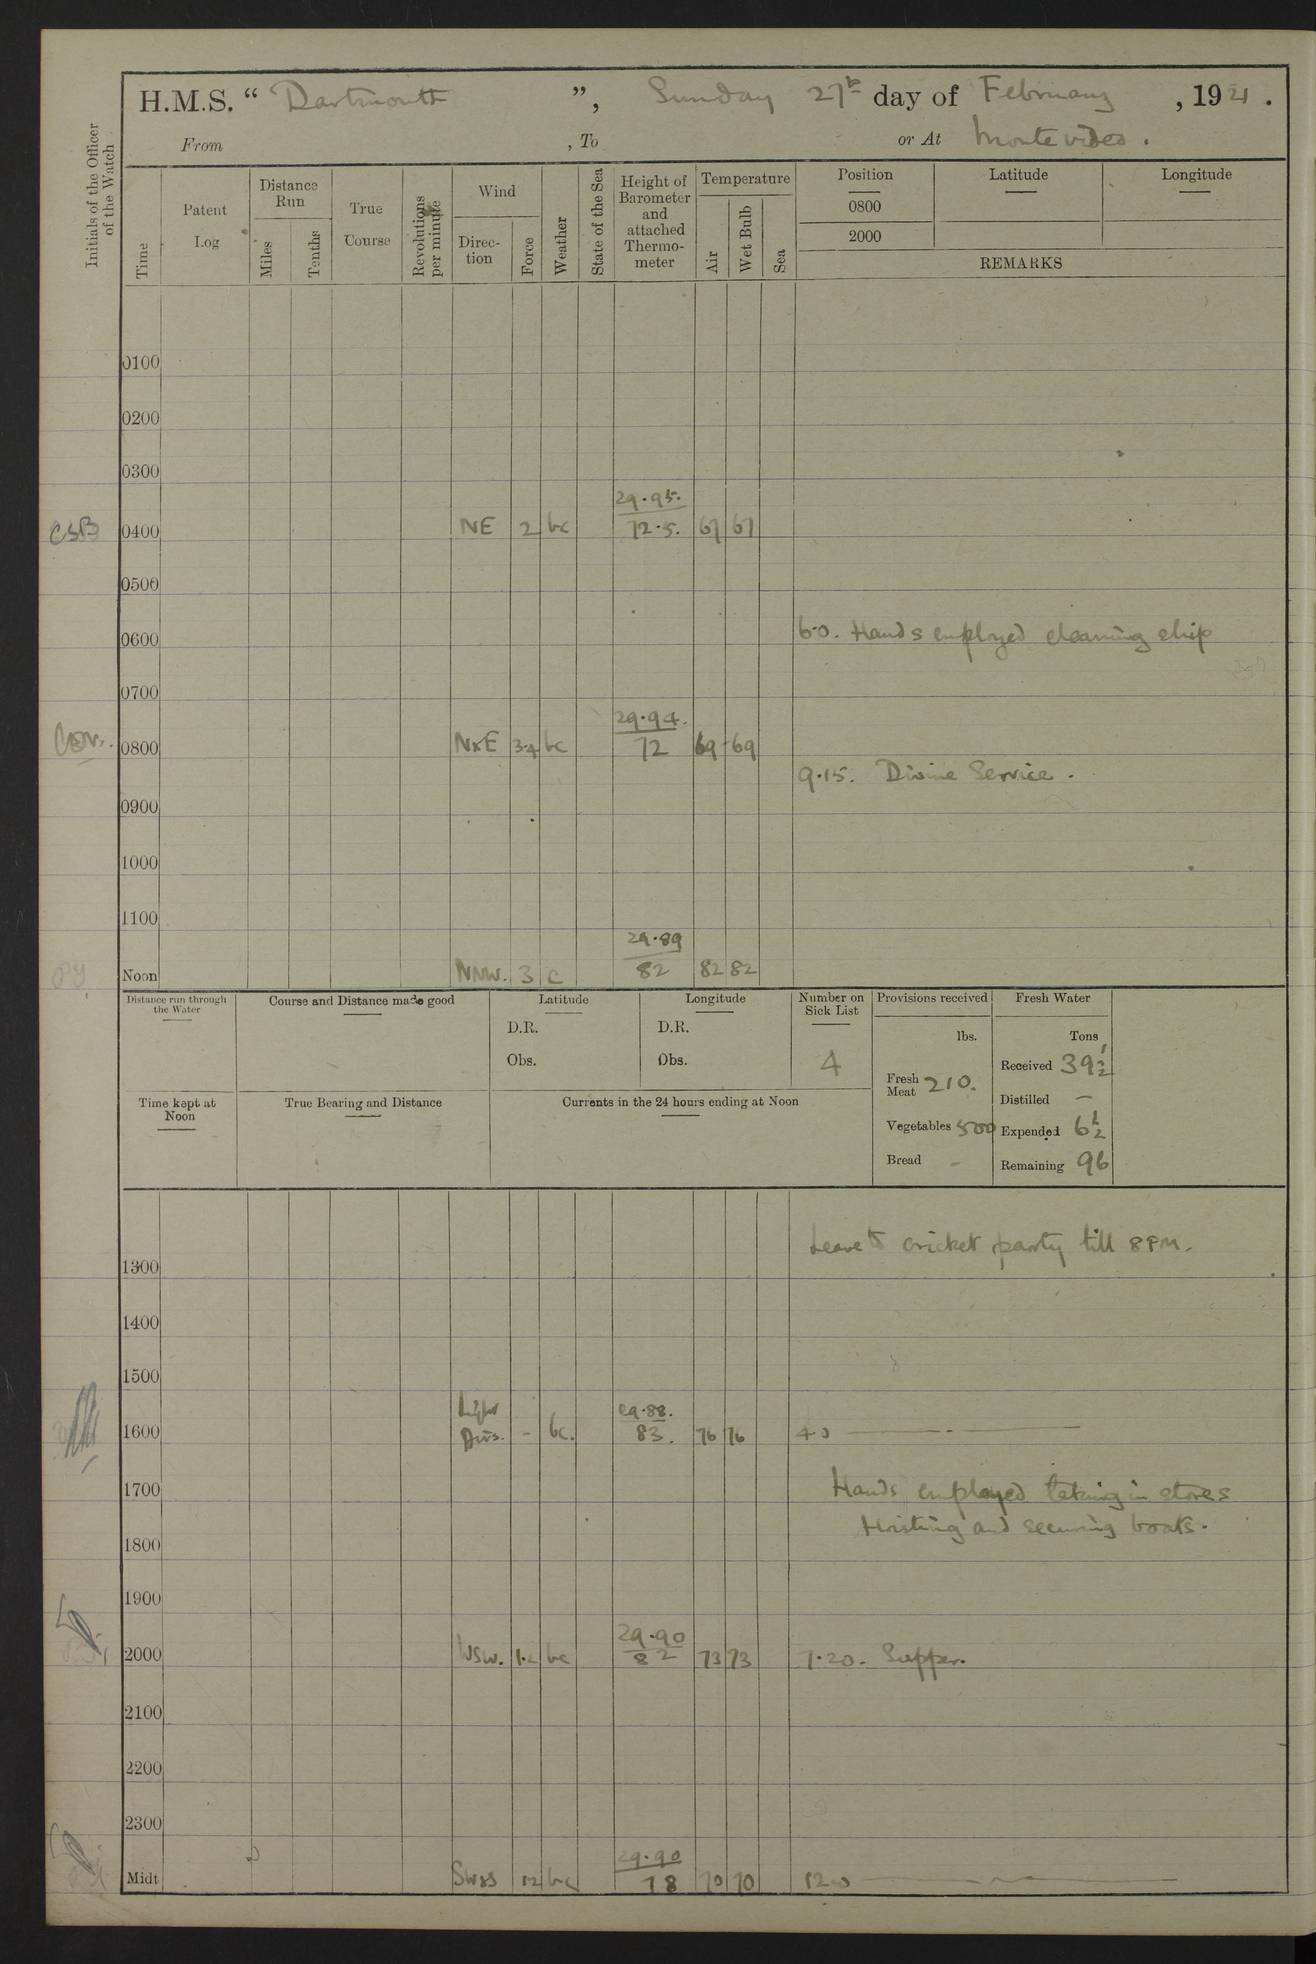 H.M.S. “ Dartmouth ”, Sunday 27th day of February , 1921 .
From , To or At Montevideo .
Initials of the Officer of the Watch
Time
Patent Log
Distance Run
Miles
Tenths
True Course
Revolutions per minute
Wind
Direc-tion
Force
Weather
State of the Sea
Height of Barometer and attached Thermo-meter
Temperature
Air
Wet Bulb
Sea
Position
Latitude
Longitude
0800
2000
REMARKS
0100
0200
0300
29.95.
CSB 0400 NE 2 bc 72.5. 67 67
0500
0600 6.0. Hands employed cleaning ship
0700
29.94.
0800 NxE 3.4 bc 72 69 69
9.15. Divine Service .
0900
1000
1100
29.89
Noon NNW. 3 c 82 82 82
Distance run through the Water
Course and Distance made good
Latitude
D.R.
Obs.
Longitude
D.R.
Obs.
Number on Sick List
4
Provisions received
lbs.
Fresh Meat 210.
Vegetables 500
Bread -
Fresh Water
Tons
Received 39 1/2
Distilled —
Expended 6 1/2
Remaining 96
Time kept at Noon
True Bearing and Distance
Currents in the 24 hours ending at Noon
Leave to cricket party till 8 PM.
1300
1400
1500
Light 29.88.
1600 Airs. - bc. 83. 76 76 4.0
1700 Hands employed taking in stores
Hoisting and securing boats.
1800
1900
29.90
2000 WSW. 1.2 bc 82 73 73 7.20. Supper.
2100
2200
2300
29.90
Midt SWxS 12 bc 78 70 70 12.0